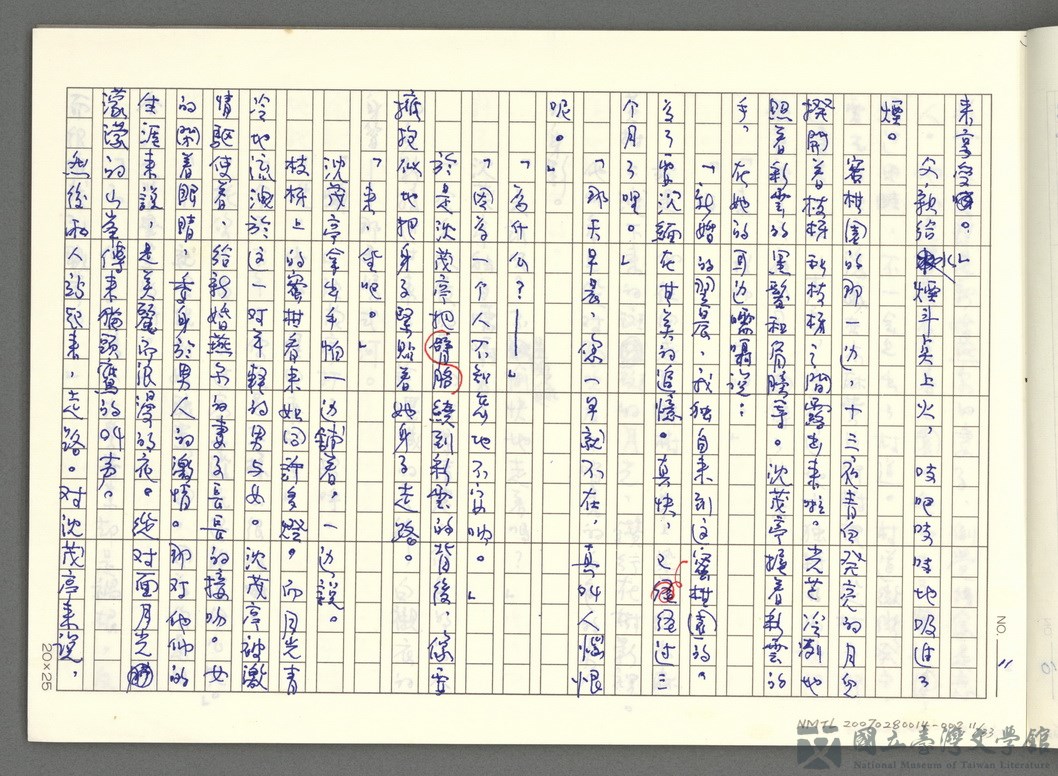 来享受。
父,敦给水煙斗点上火,吱吧吱吐地吸进了
煙。
蜜柑園的那一边,十三夜青白発亮的月兒
撥開着枝枒和枝枒之間露出来啦。光芒冷澈地
照着彩雲的黑髮和肩膀等。沈茂亭握着彩雲的
手,在她的耳边囁嚅说:
「新婚的翌晨,我独自来到这蜜柑園的。
為了要沈緬在甘美的追憶。真快,已经经过三
个月了哩。」
「那天早晨,你一早就不在,真叫人惱恨
呢。」
「為什么?——」
「因為一个人不知怎地不安呐。」
於是沈茂亭把臂胳繞到彩雲的背後,像要
擁抱似地把身子緊貼着她身子走路。
「来,坐吧。」
沈茂亭拿出手帕一边鋪着,一边說。
枝枒上的蜜柑看来如同許多燈。而月光青
冷地流洩於这一对年輕的男与女。沈茂亭被激
情駆使着,给新婚燕尔的妻子長長的接吻。女
的閉着眼睛,委身於男人的激情。那対他们的
生涯来説,是美麗而浪漫的夜。從对面月光
濛濛的山峦傳来貓頭鷹的叫声。
然後兩人站起来,走路。对沈茂亭来說,
NO. 11
20×25
NMTL 20070280014-002 11/53
國立臺灣文學館
National Museum of Taiwan Literature